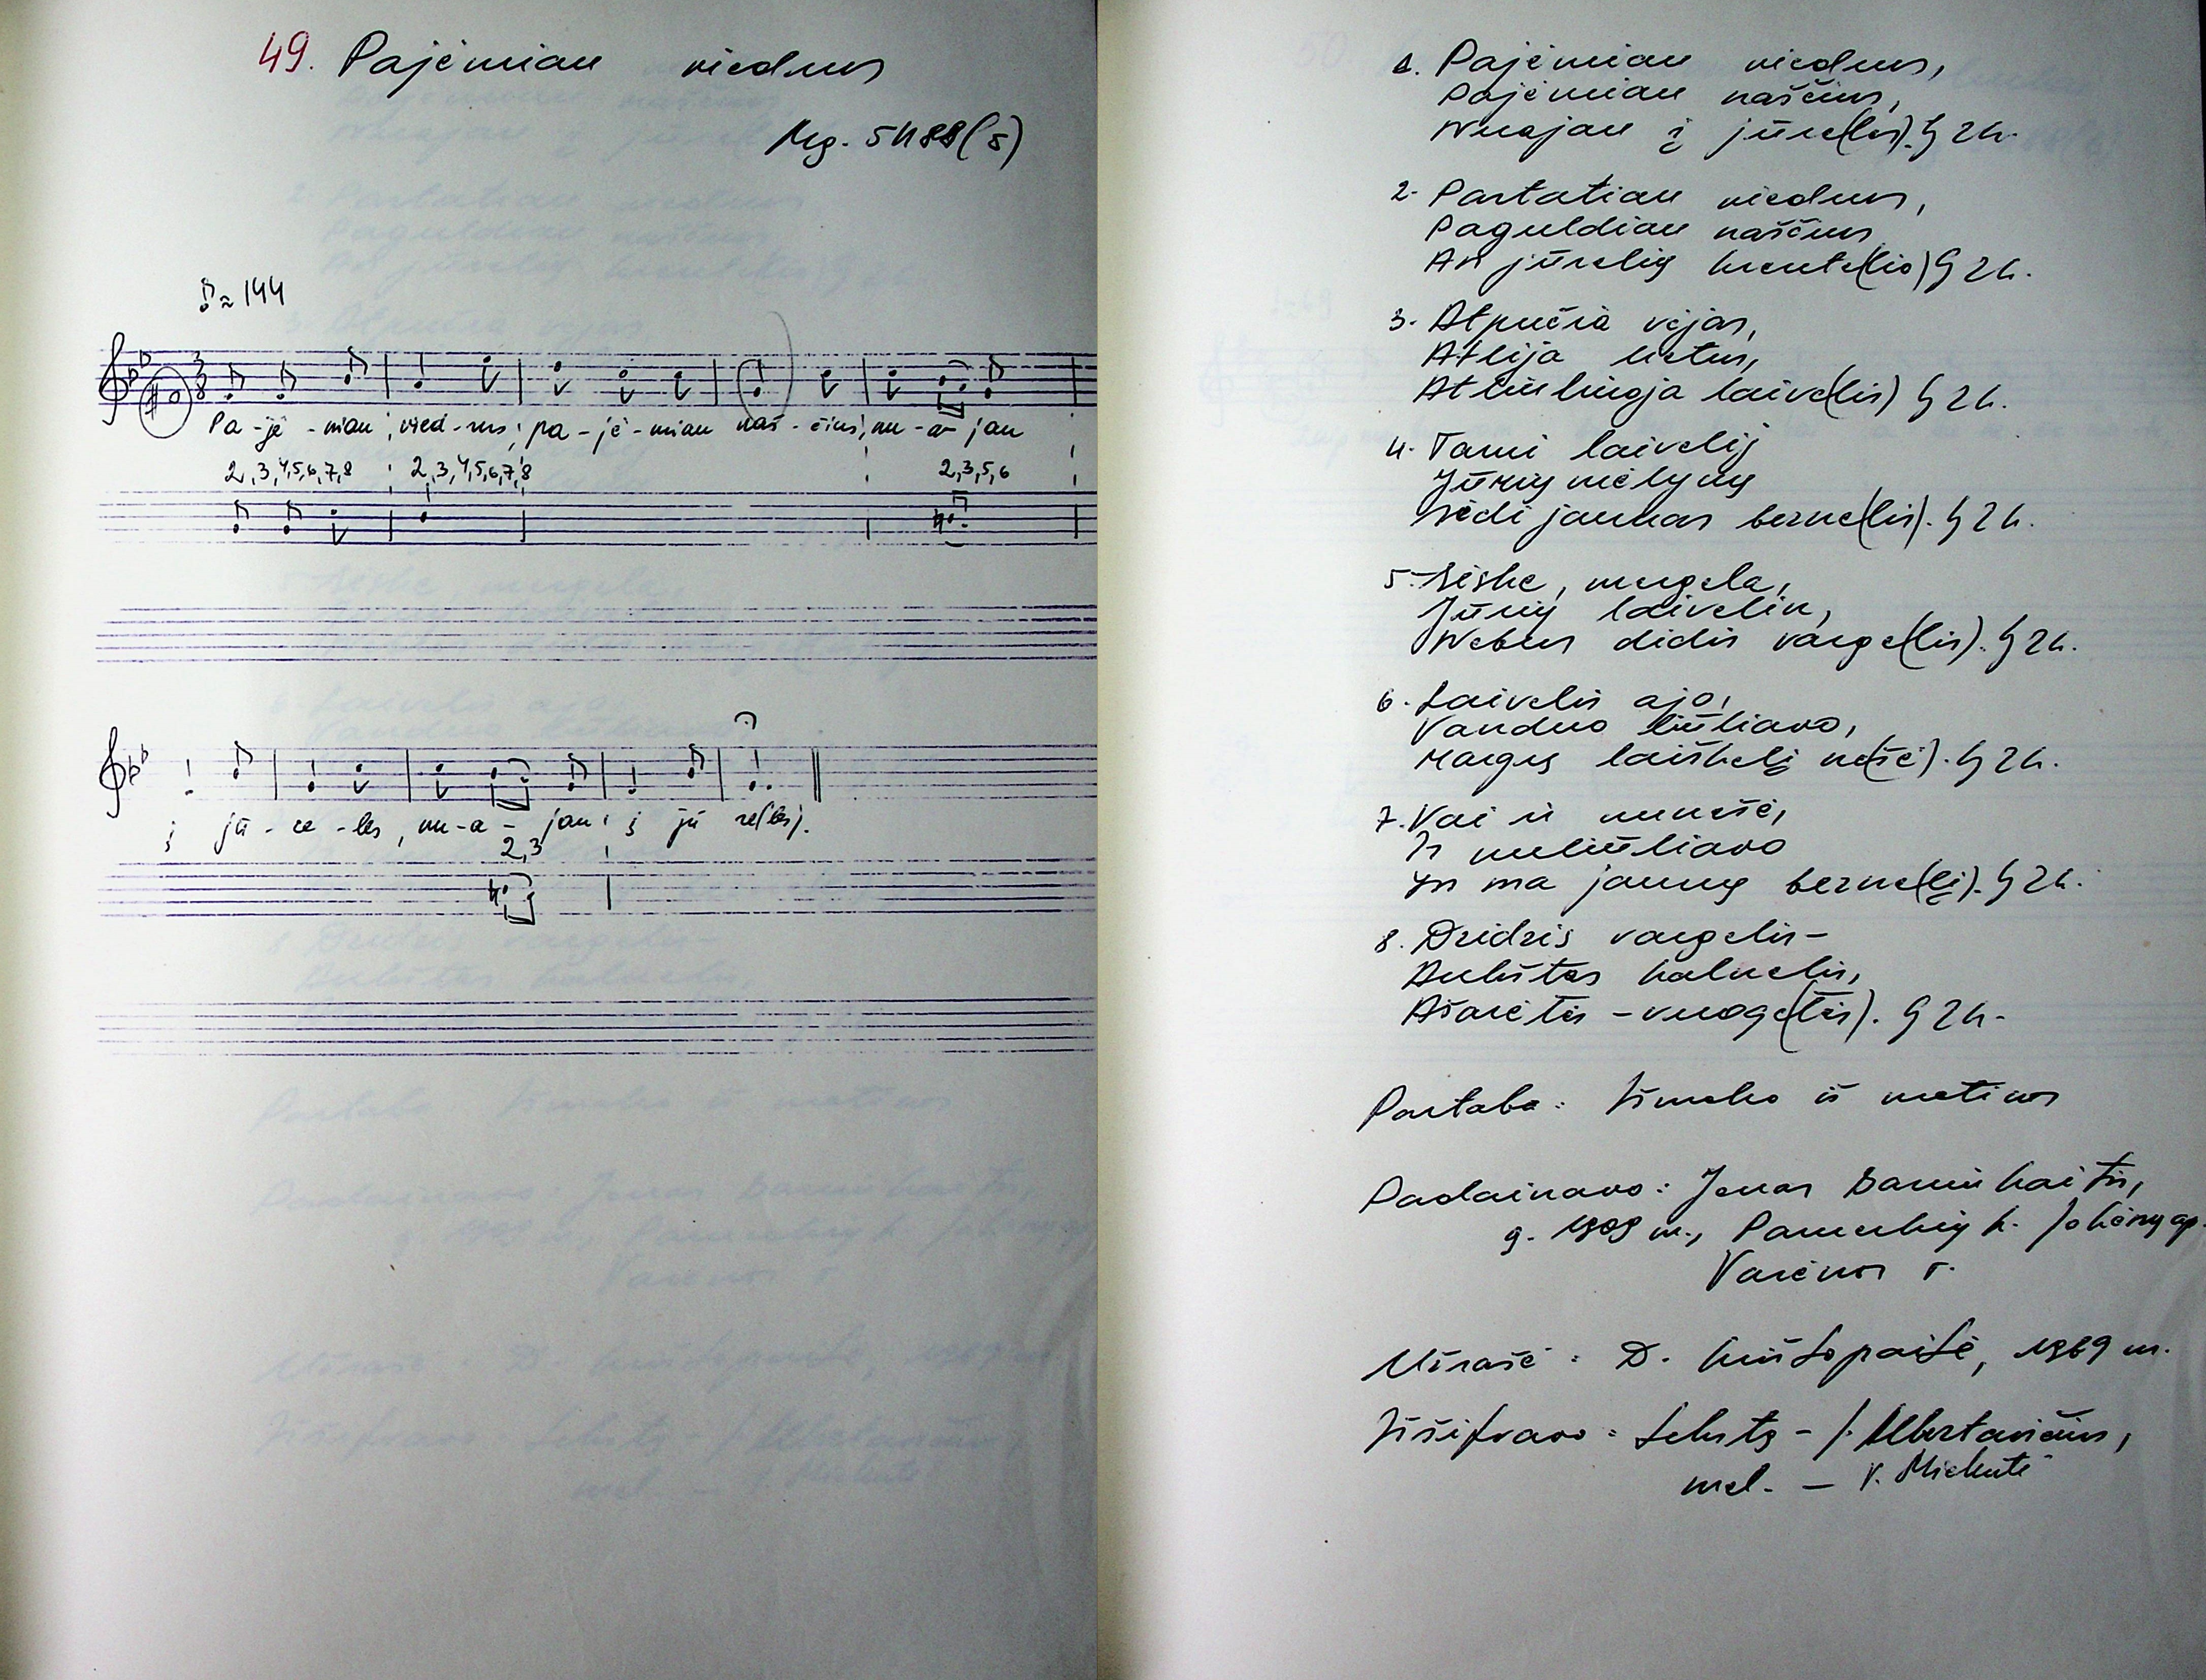 49. Pajėmiau viedrus
Mg. 5488(5)
≈ 144
3
8
Pa-jė-miau vied-rus, pa-jė-miau naš-čius, nu-a-jau
2,3,4,5,6,7,8 2,3,4,5,6,7,8 2,3,5,6
į jū-re-les, nu-a-jau į jū re(les).
2,3
1. Pajėmiau viedrus,
Pajėmiau naščius,
Nuajau į jūre(les). 2k.
2. Pastatiau viedrus,
Paguldiau naščius
An jūrelių krante(lio) 2k.
3. Atpučia vėjas,
Atlija lietus,
Atliulingja laive(lis) 2k.
4. Tami laivelij
Jūrių mėlynų
Sėdi jaunas berne(lis). 2k.
5. Sėske, mergela,
Jūrių laivelin,
Nebus didis varge(lis). 2k.
6. Laivelis ajo,
Vanduo liūliavo,
Margų laiškelį ne(šė). 2k.
7. Vai ir nunešė,
Ir nuliūliavo
Pas ma jauną berne(lį). 2k.
8. Dzidzis vargelis-
Aukštas kalnelis,
Ašarėtės - vuoge(tės). 2k.
Pastaba: Išmoko iš motinos
Padainavo: Jonas Bam
g. 1909 m., k. Jakėnų ap.
Varėnos r.
Užrašė: D. Krištopaitė, 1969 m.
Iššifravo: tekstą - Albertavičius,
mel. - V. Mickutė